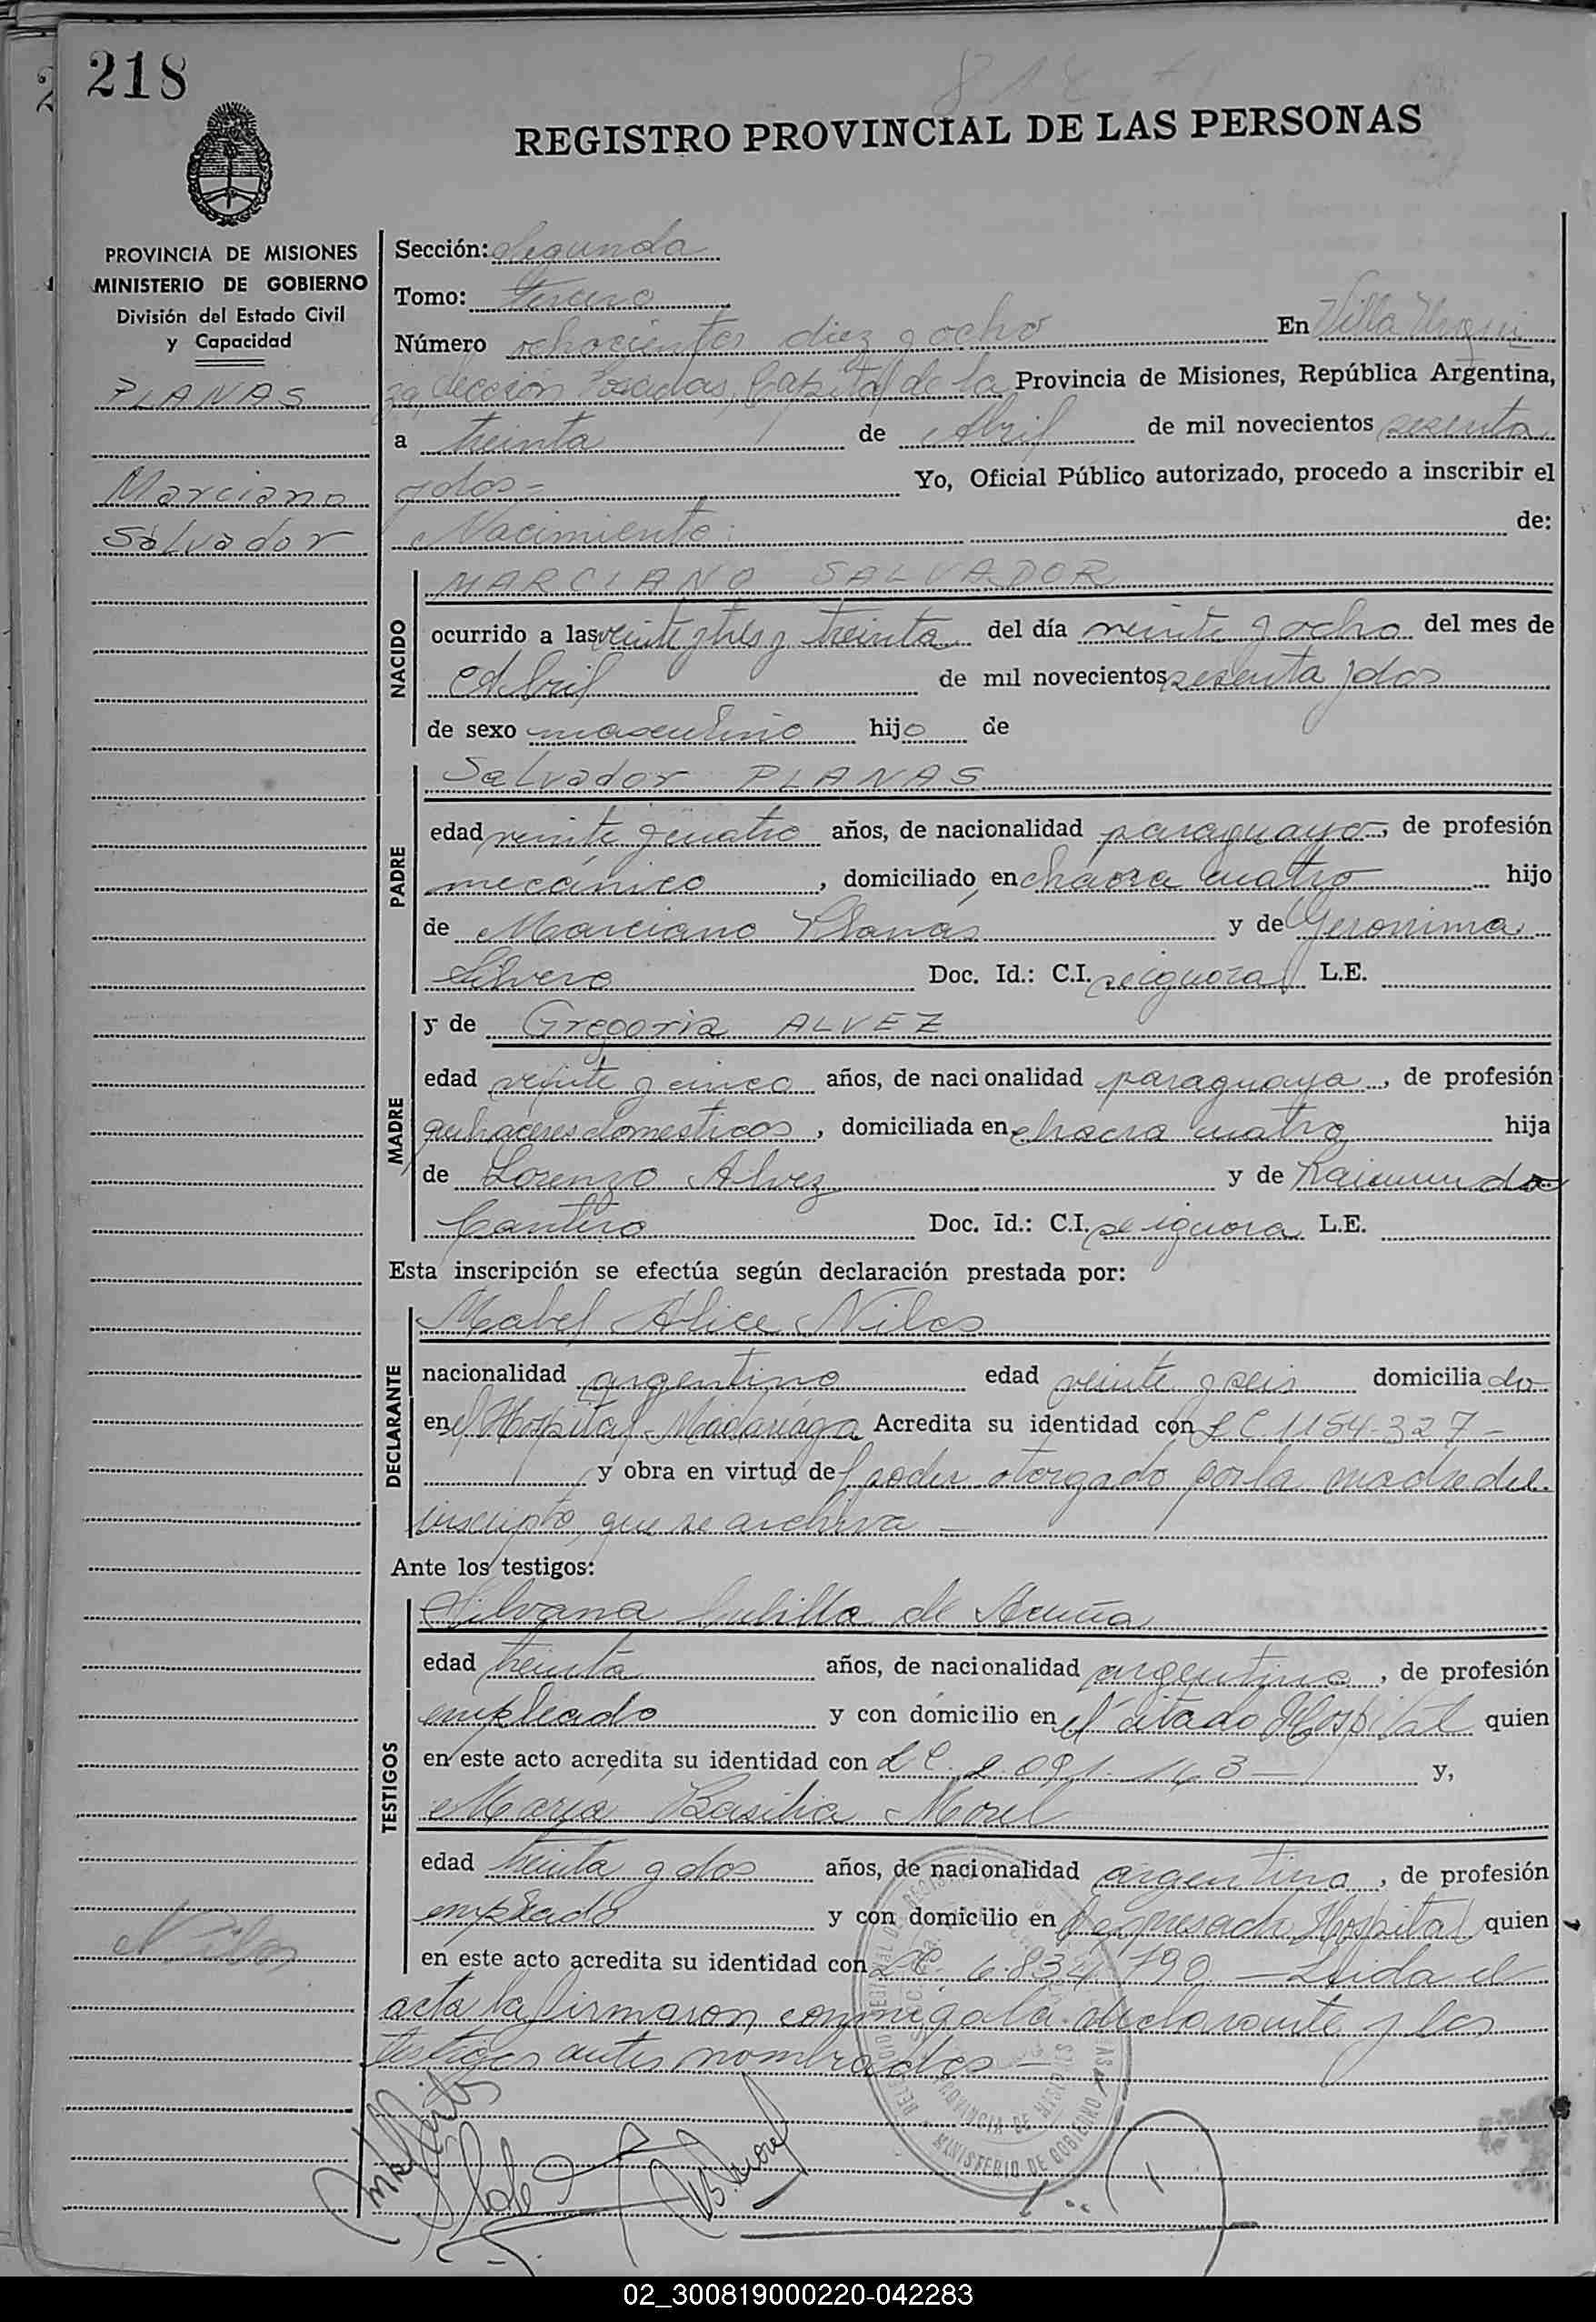 218
REGISTRO PROVINCIAL DE LAS PERSONAS
PROVINCIA DE MISIONES
MINISTERIO DE GOBIERNO
División del Estado Civil
y Capacidad
PLANAS
Marciano
Salvador
Sección: Segunda
Tomo: Tercero
Número ochocientos diez y ocho En Villa Urqui
za, Sección Posadas, Capital de la Provincia de Misiones, República Argentina,
a treinta de Abril de mil novecientos sesenta
y dos = Yo, Oficial Público autorizado, procedo a inscribir el
Nacimiento: de:
NACIDO
MARCIANO SALVADOR
ocurrido a las veinte y tres y treinta del día veinte y ocho del mes de
Abril de mil novecientos sesenta y dos
de sexo masculino hijo de
PADRE
Salvador PLANAS
edad veinte y cuatro años, de nacionalidad paraguayo, de profesión
mecánico, domiciliado en chacra cuatro hijo
de Marciano Planás y de Geronima
Silvero Doc. Id.: C.I. se ignora L.E.
MADRE
y de Gregoria ALVEZ
edad veinte y cinco años, de nacionalidad paraguaya, de profesión
quehaceres domesticos, domiciliada en chacra cuatro hija
de Lorenzo Alvez y de Raimunda
Cantero Doc. Id.: C.I. se ignora L.E.
Esta inscripción se efectúa según declaración prestada por:
DECLARANTE
Mabel Alice Niles
nacionalidad argentino edad veinte y seis domiciliado
en el Hospital Madariaga Acredita su identidad con LC. 1154.327 -
y obra en virtud del poder otorgado por la madre del
inscripto, que se archiva —
Ante los testigos:
TESTIGOS
Silvana de Acuña
edad treinta años, de nacionalidad argentino, de profesión
empleado y con domicilio en el citado Hospital quien
en este acto acredita su identidad con LC. 2.091.143 — y,
María Basilia Morel
edad treinta y dos años, de nacionalidad argentino, de profesión
empleado y con domicilio en el expresado Hospital quien
en este acto acredita su identidad con LC. 6.834.790 — Leida el
acta la firmaron conmigo la declarante y los
testigos antes nombrados —
MINISTERIO DE GOBIERNO
PROVINCIA DE MISIONES
02_300819000220-042283